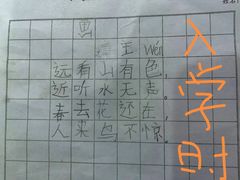 王 wén
远看山有色，
近听水无声。
春去花还在，
人来鸟不惊。
入学时